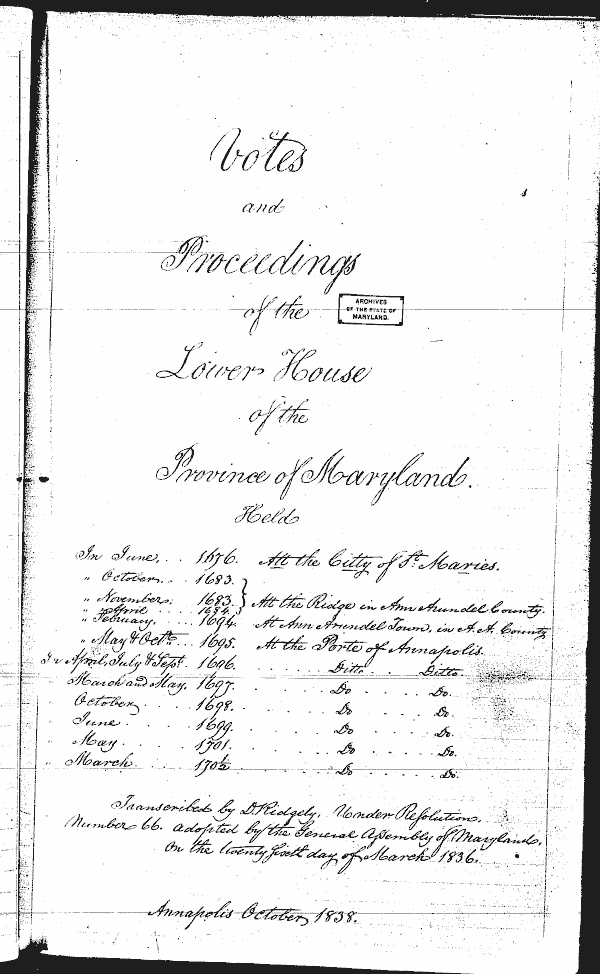 Votes
and
Proceedings
of the
ARCHIVES
OF THE STATE OF
MARYLAND.
Lower House
of the
Province of Maryland.
Held
In June, . . . 1676. Att the Citty of St. Maries.
" October, . . . 1683.
" November, . . 1683.
" April . . . 1684. } Att the Ridge in Ann Arundel County.
" February, . . . 1694. At Ann Arundel Town, in A.A. County
" May & Octr. . . . 1695. At the Porte of Annapolis.
In April, July & Sept. . 1696. . . . Ditto . . . Ditto.
March and May. 1697. . . . Do . . . Do.
October, . . . 1698. . . . Do . . . Do.
June . . . 1699. . . . Do . . . Do.
May . . . 1701. . . . Do . . . Do.
" March . . . 1702. . . . Do . . . Do.
Transcribed by D. Ridgely. Under Resolution.
Number 66. adopted by the General Assembly of Maryland.
On the twenty sixth day of March 1836.
Annapolis October, 1838.